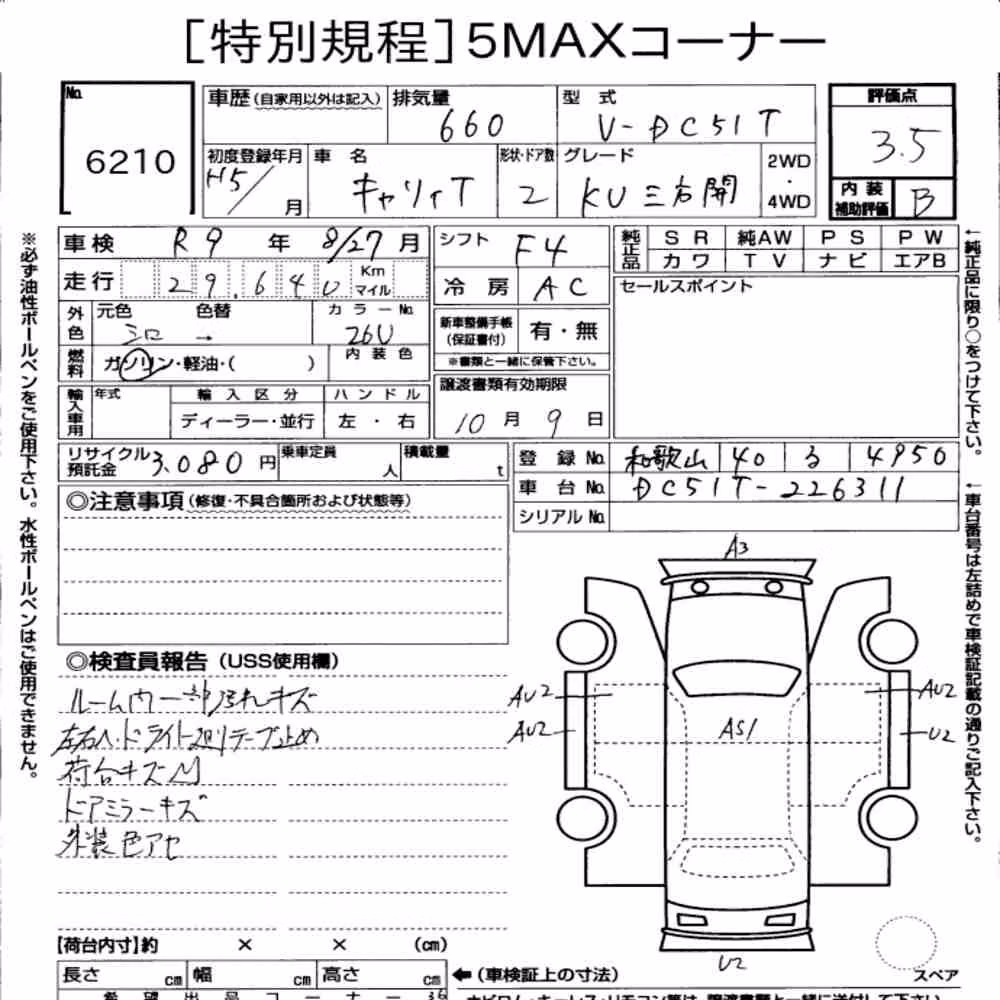 [特別規程]5MAXコーナー
No. 6210
車歴(自家用以外は記入) 排気量 660 型式 V-DC51T 評価点 3.5
初度登録年月 H5/ 月 車名 キャリィT 形状・ドア数 2 グレード KU三方開 2WD・4WD 内装補助評価 B
車検 R9年 8/27月 シフト F4 純正品 SR 純AW PS PW
カワ TV ナビ エアB
走行 29,640 Km マイル 冷房 AC セールスポイント
外色 元色 シロ 色替 → カラーNo. 26U 新車整備手帳(保証書付) 有・無
※書類と一緒に保管下さい。
燃料 ガソリン・軽油・( ) 内装色
譲渡書類有効期限 10月9日
輸入車用 年式 輸入区分 ハンドル
ディーラー・並行 左・右
リサイクル預託金 3,080円 乗車定員 人 積載量 t
登録No. 和歌山 40 る 4950
車台No. DC51T-226311
シリアルNo.
◎注意事項(修復・不具合箇所および状態等)
※必ず油性ボールペンをご使用下さい。水性ボールペンはご使用できません。
←純正品に限り○をつけて下さい。
←車台番号は左詰めで車検証記載の通りご記入下さい。
◎検査員報告(USS使用欄)
ルーム内一部汚れキズ
左右ヘッドライト廻りテープ止め
荷台キズ凹
ドアミラーキズ
外装色アセ
A3
AU2 AU2
AU2 AS1 U2
U2
スペア
【荷台内寸】約 × × (cm)
長さ cm 幅 cm 高さ cm ←(車検証上の寸法)
希望出品コーナー